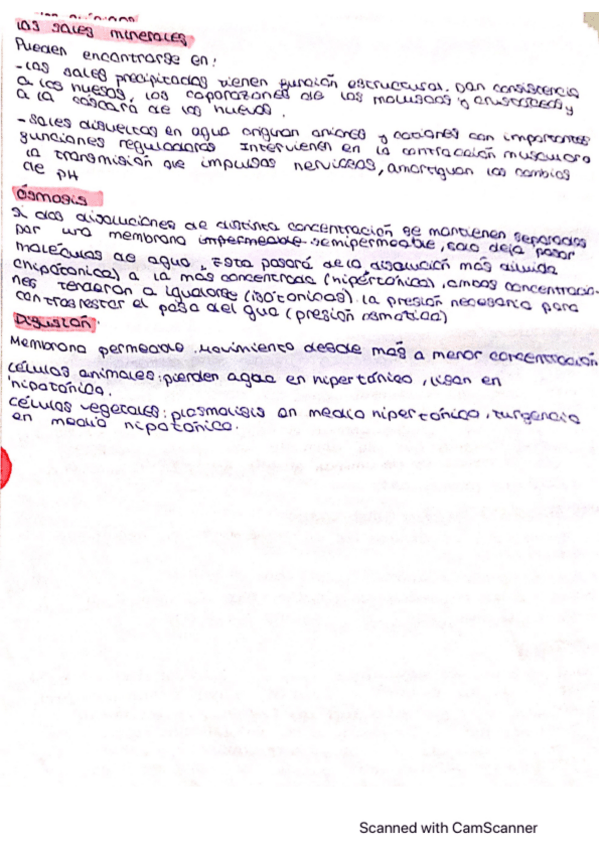 Las sales minerales
Pueden encontrarse en:
- Las sales precipitadas tienen función estructural. Dan consistencia
a los huesos, los caparazones de los moluscos y crustáceos y
a la cáscara de los huevos.
- Sales disueltas en agua originan aniones y cationes con importantes
funciones reguladoras intervienen en la contracción muscular
la transmisión de impulsos nerviosos, amortiguan los cambios
de PH
Ósmosis
Si dos disoluciones de distinta concentración se mantienen separadas
por una membrana impermeable semipermeable, solo deja pasar
moléculas de agua, Esta pasará de la disolución más diluida
(hipotónica) a la más concentrada (hipertónica), ambas concentracio-
nes tenderán a igualarse (isotónicas). La presión necesaria para
contrarrestar el paso del gua (presión osmótica)
Difusión.
Membrana permeable, movimiento desde más a menor concentración
células animales: pierden agua en hipertónico, lisan en
hipotónico.
células vegetales: plasmolisis en medio hipertónico, turgencia
en medio hipotónico.
Scanned with CamScanner